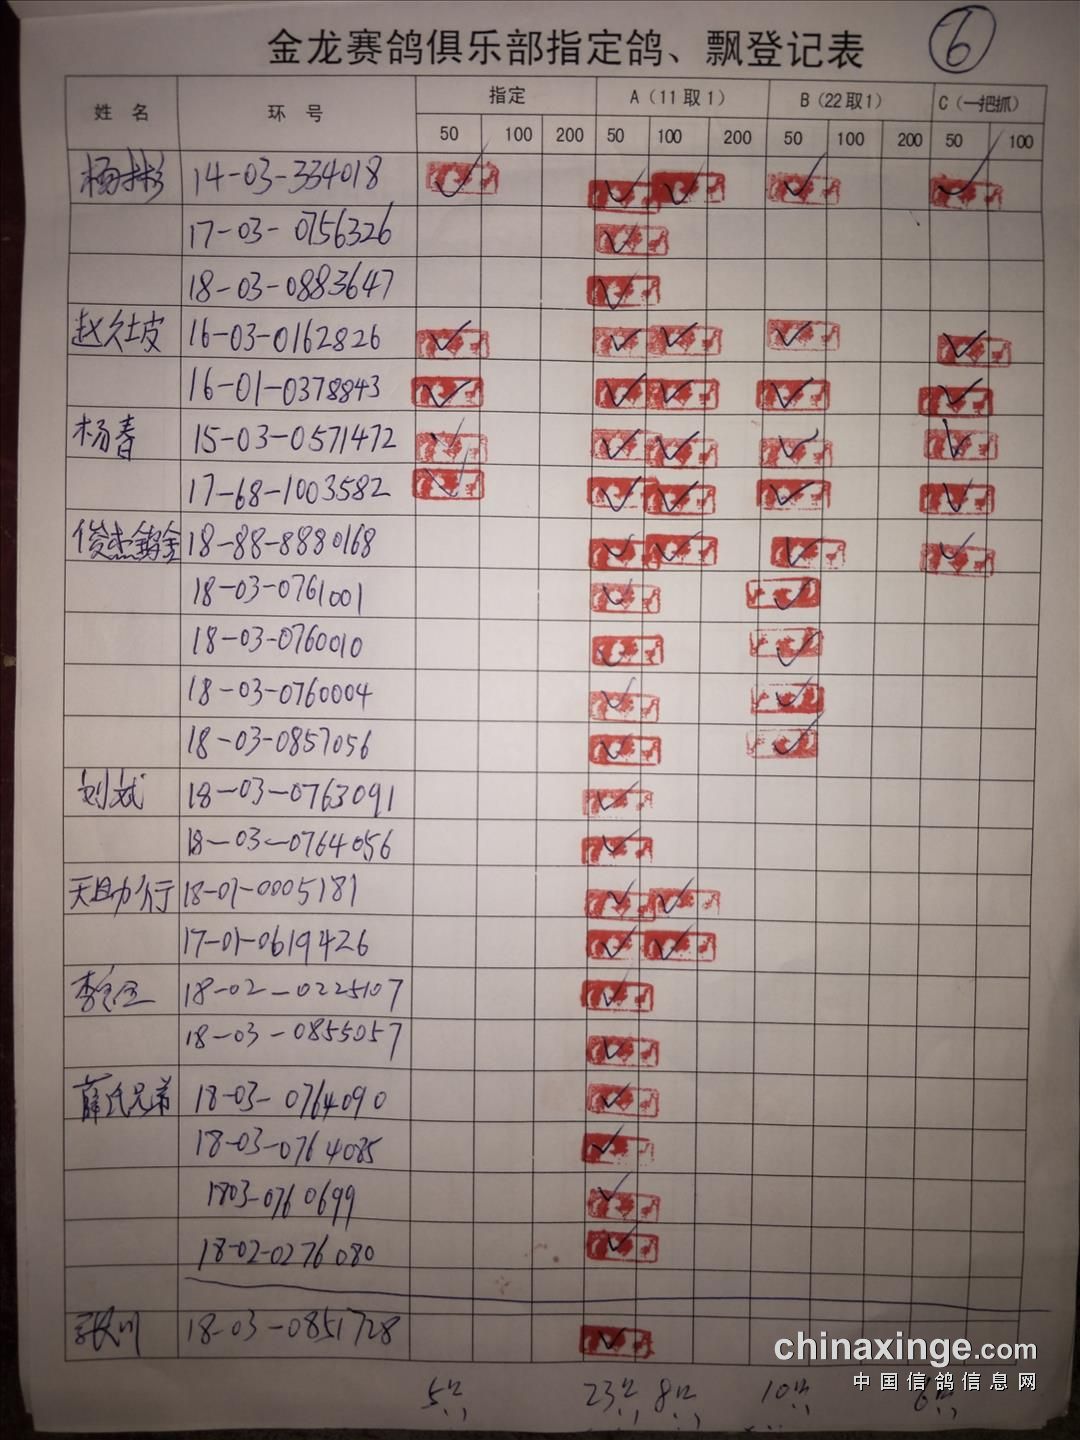 金龙赛鸽俱乐部指定鸽、飘登记表 6
姓名 环号 指定 A（11取1） B（22取1） C（一把抓）
50 100 200 50 100 200 50 100 200 50 100
14-03-334018
17-03-0756326
18-03-0883647
16-03-0162826
16-01-0378843
杨春 15-03-0571472
17-68-1003582
18-88-8880168
18-03-0761001
18-03-0760010
18-03-0760004
18-03-0857056
刘斌 18-03-0763091
18-03-0764056
天助力行 18-01-0005181
17-01-0619426
18-02-0225107
18-03-0855057
薛氏兄弟 18-03-0764090
18-03-0764085
1803-0760699
18-02-0276080
18-03-0851728
5 23 8 10 6
chinaxinge.com
中国信鸽信息网